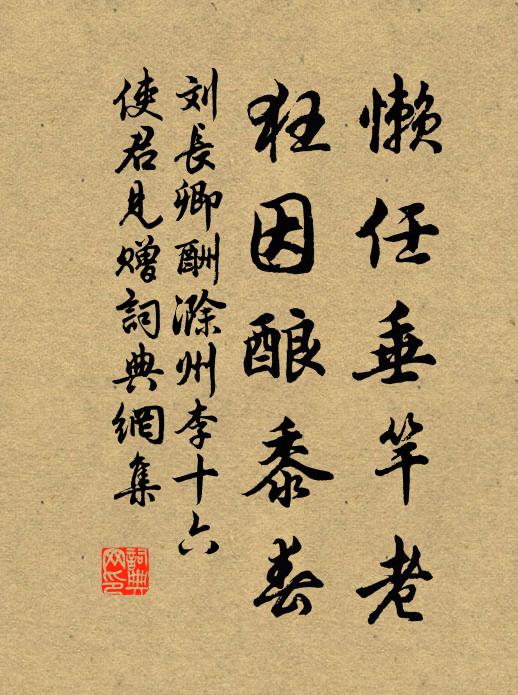 懒任垂竿老
狂因酿黍春
刘長卿酬滁州李十六
使君见赠詞典網集
詞典
网印